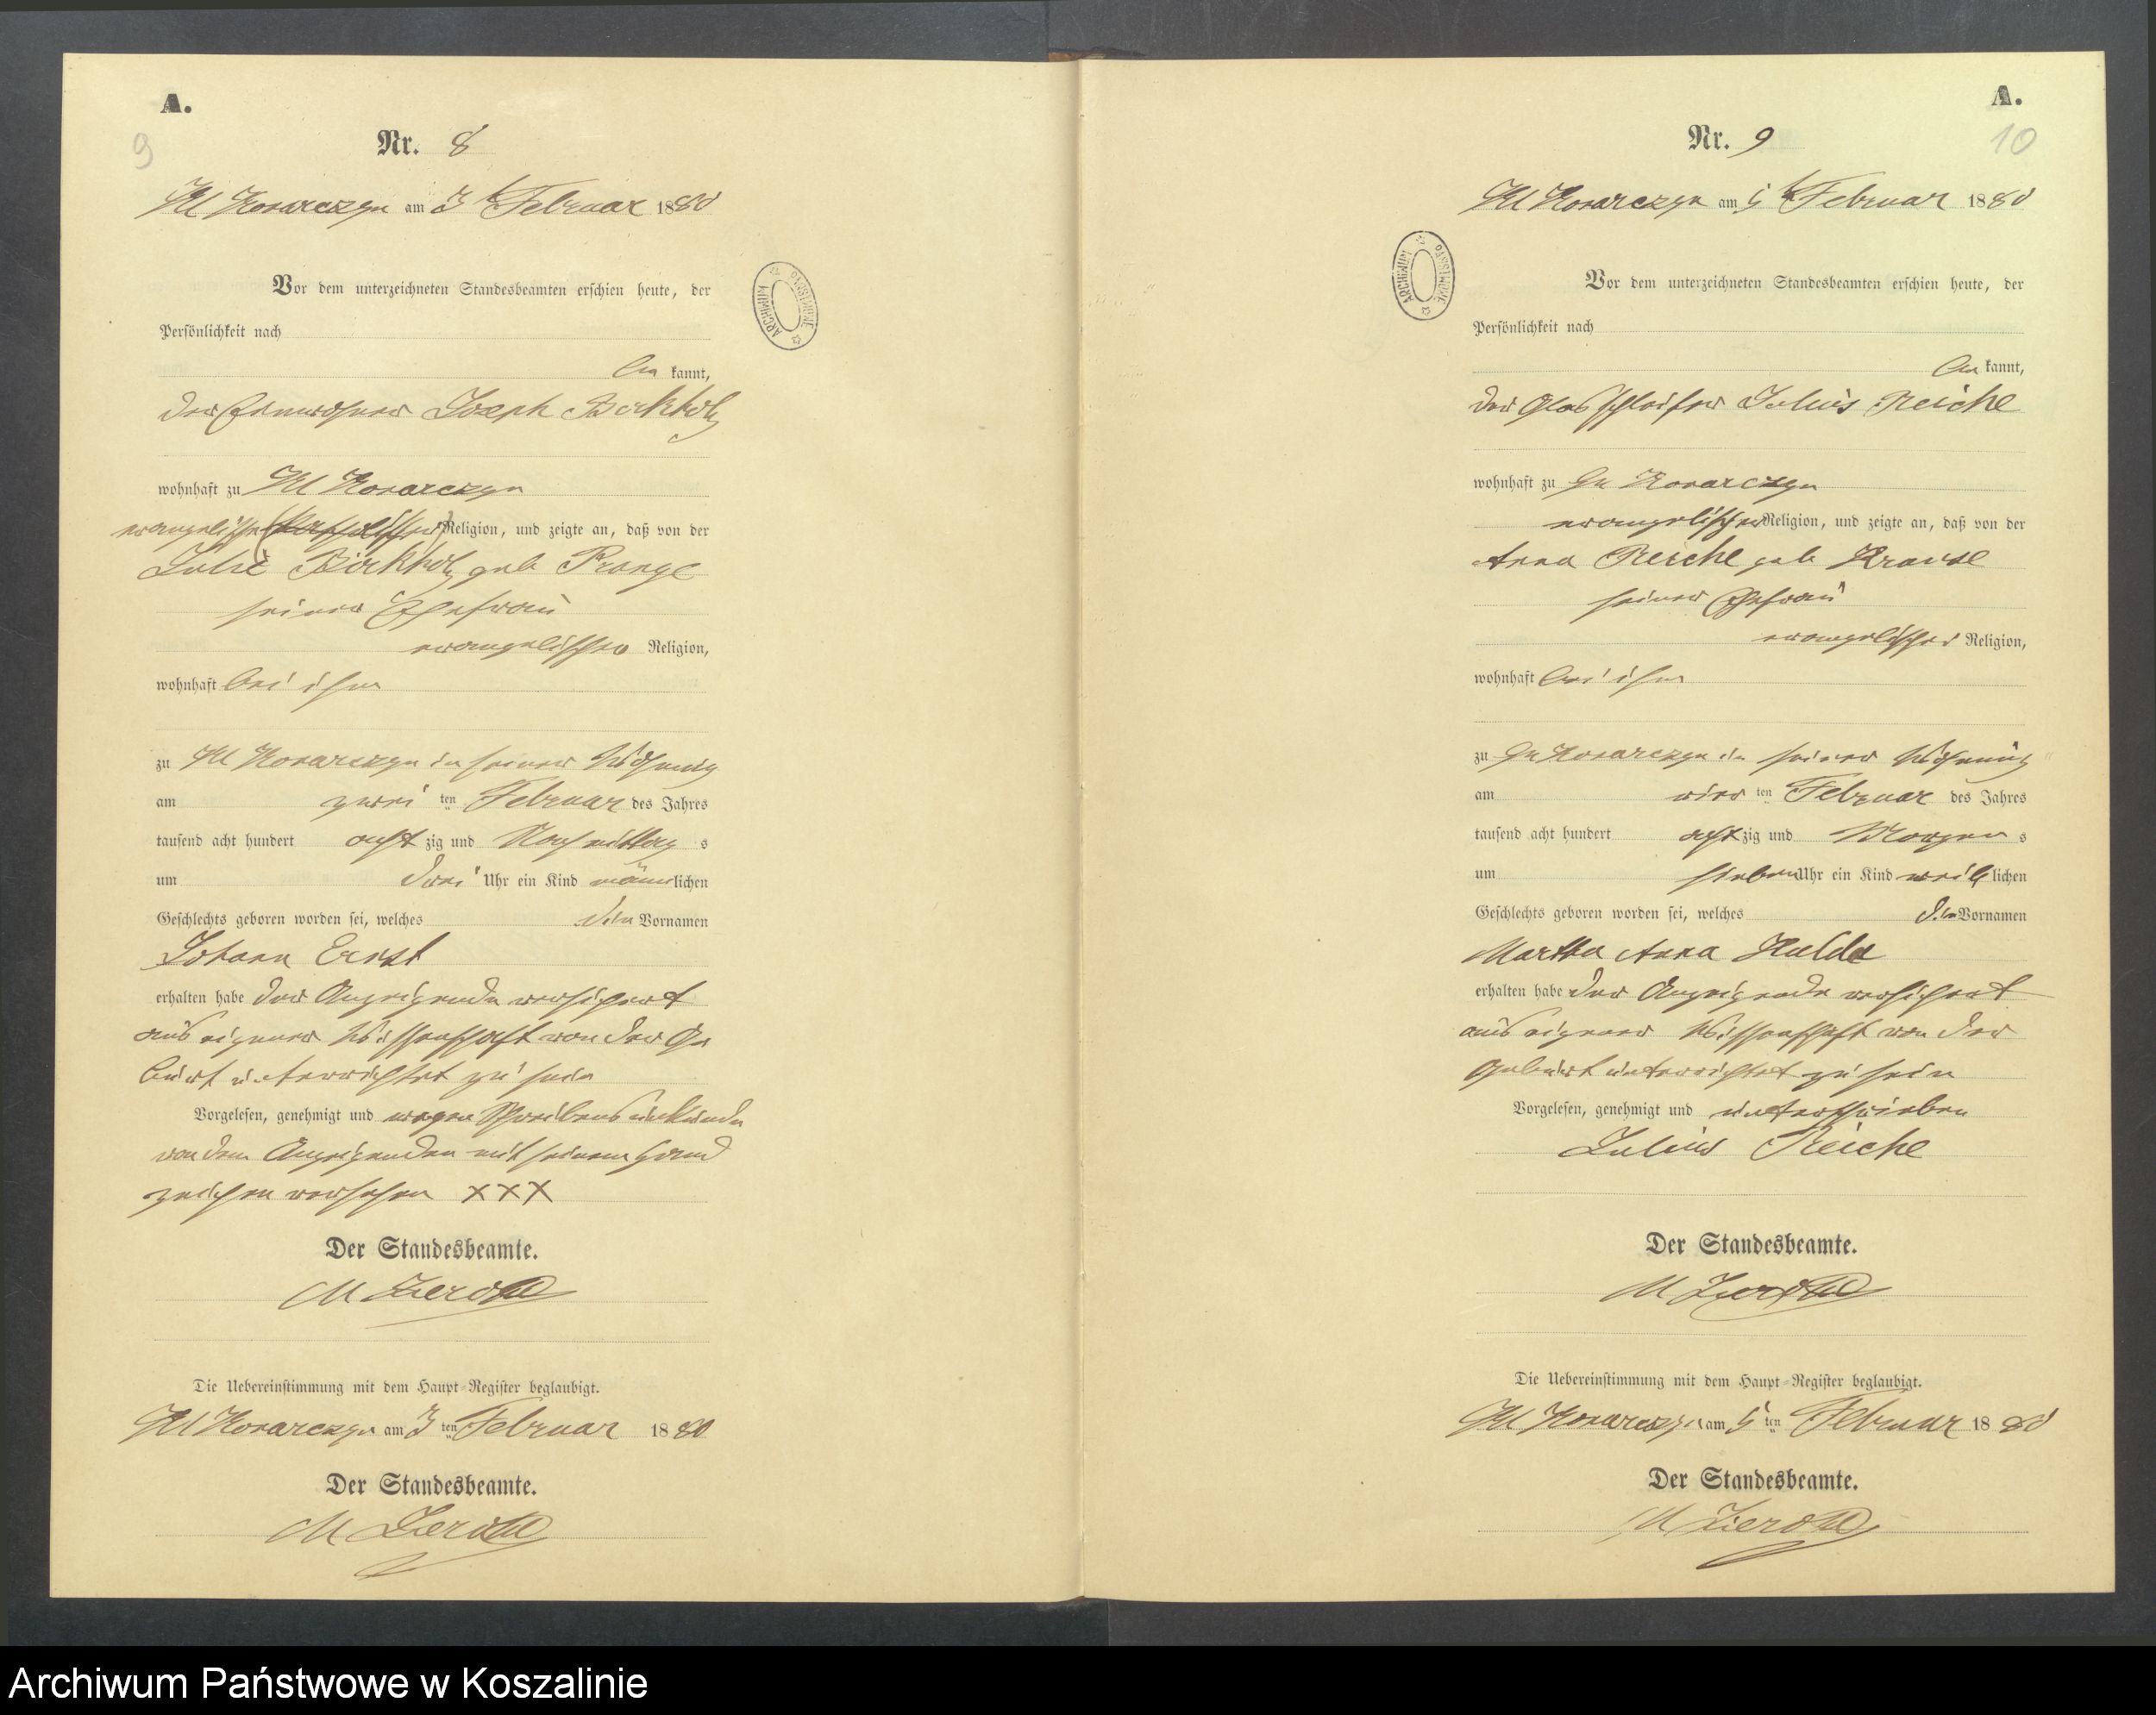 A.
9
Nr. 8
Kl Konarczyn am 3t Februar 1880
Vor dem unterzeichneten Standesbeamten erschien heute, der
Persönlichkeit nach
be kannt,
der Einwohner Joseph Birkholz
wohnhaft zu Kl Konarczyn
evangelischer (katholischer) Religion, und zeigte an, daß von der
Julie Birkholz geb Prange
seiner Ehefrau
evangelischer Religion,
wohnhaft bei ihm
zu Kl Konarczyn in seiner Wohnung
am zwei ten Februar des Jahres
tausend acht hundert acht zig und Nachmittag s
um drei Uhr ein Kind männlichen
Geschlechts geboren worden sei, welches die Vornamen
Johann Ernst
erhalten habe der Anzeigende versichert
aus eigener Wissenschaft von der Ge
burt unterrichtet zu sein
Vorgelesen, genehmigt und wegen Schreibensunkunde
von dem Anzeigenden mit seinem Hand
zeichen versehen XXX
Der Standesbeamte.
M Zierold
Die Uebereinstimmung mit dem Haupt-Register beglaubigt.
Kl Konarczyn am 3 ten Februar 1880
Der Standesbeamte.
M Zierold
ARCHIWUM PAŃSTWOWE
A.
10
Nr. 9
Kl Konarczyn am 5t Februar 1880
Vor dem unterzeichneten Standesbeamten erschien heute, der
Persönlichkeit nach
be kannt,
der Glasschleifer Julius Reiche
wohnhaft zu Gr Konarczyn
evangelischer Religion, und zeigte an, daß von der
Anna Reiche geb Krause
seiner Ehefrau
evangelischer Religion,
wohnhaft bei ihm
zu Gr Konarczyn in seiner Wohnung
am vier ten Februar des Jahres
tausend acht hundert acht zig und Morgen s
um sieben Uhr ein Kind weib lichen
Geschlechts geboren worden sei, welches die Vornamen
Martha Anna Hulda
erhalten habe der Anzeigende versichert
aus eigener Wissenschaft von der
Geburt unterrichtet zu sein
Vorgelesen, genehmigt und unterschrieben
Julius Reiche
Der Standesbeamte.
M Zierold
Die Uebereinstimmung mit dem Haupt-Register beglaubigt.
Kl Konarczyn am 5 ten Februar 1880
Der Standesbeamte.
M Zierold
ARCHIWUM PAŃSTWOWE
Archiwum Państwowe w Koszalinie